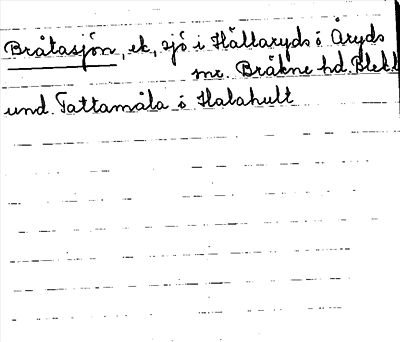 Bråtasjön, ek, sjö i Hällaryds o Åryds
snr. Bräkne hd. Blekl
und. Tattamåla o Halahult